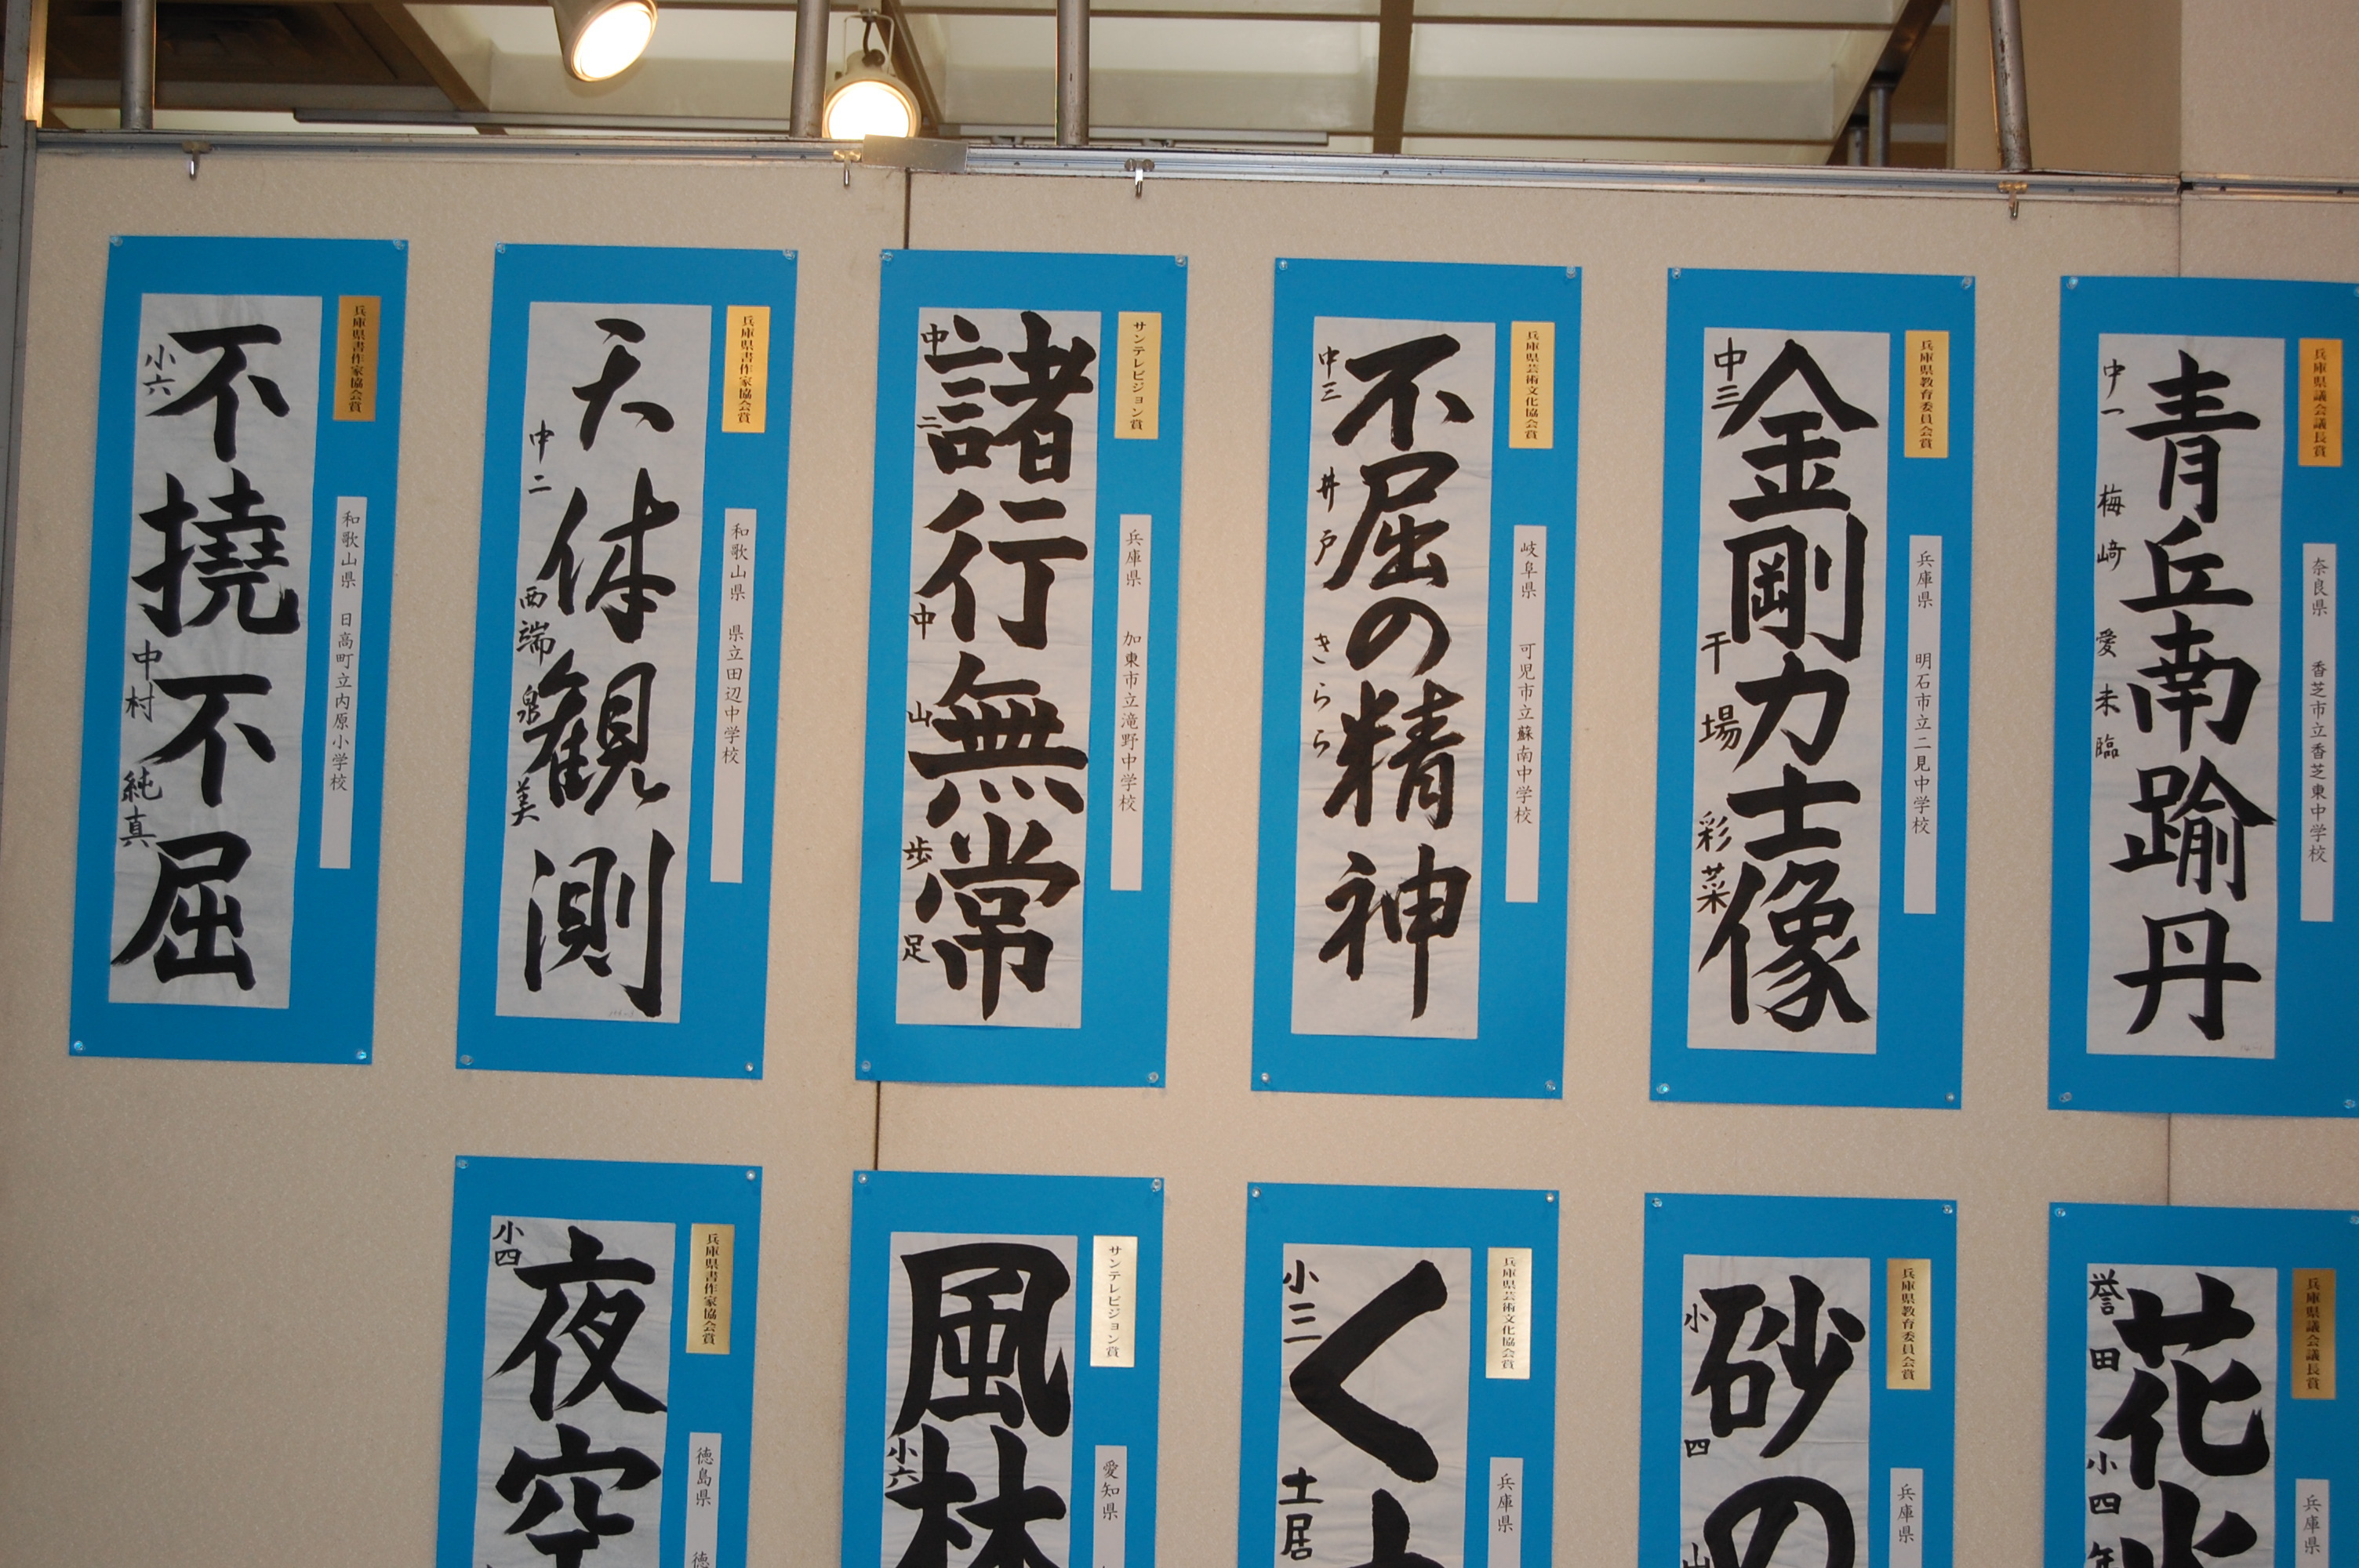 兵庫県議会議長賞
奈良県 香芝市立香芝東中学校
青丘南踰丹
中一 梅﨑 愛未臨
兵庫県教育委員会賞
兵庫県 明石市立二見中学校
金剛力士像
中三 干場 彩菜
兵庫県芸術文化協会賞
岐阜県 可児市立蘇南中学校
不屈の精神
中三 井戸 きらら
サンテレビジョン賞
兵庫県 加東市立滝野中学校
諸行無常
中二 中山 歩足
兵庫県書作家協会賞
和歌山県 県立田辺中学校
天体観測
中二 西端 泉美
兵庫県書作家協会賞
和歌山県 日高町立内原小学校
不撓不屈
小六 中村 純真
兵庫県議会議長賞
兵庫県
花
誉田 小四年
兵庫県教育委員会賞
兵庫県
砂の
小四 山
兵庫県芸術文化協会賞
兵庫県
く
小三 土居
サンテレビジョン賞
愛知県
風林
小六
兵庫県書作家協会賞
徳島県 徳
夜空
小四